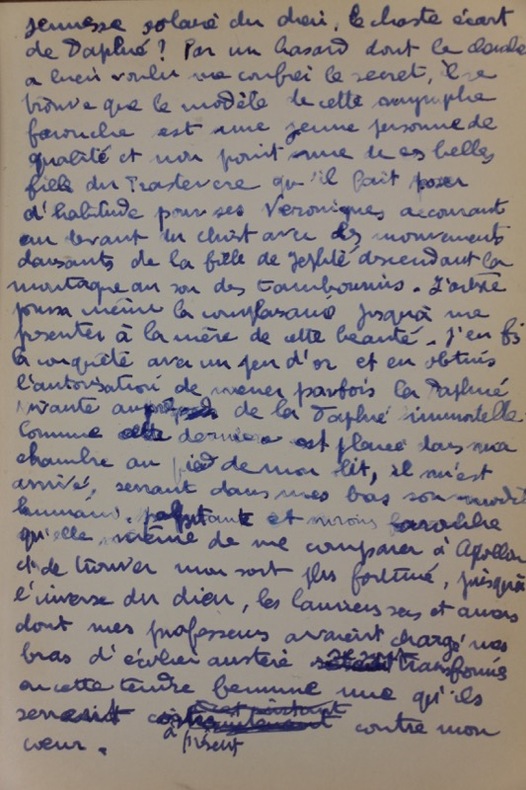 jeunesse solaire du dieu, le chaste écart
de Daphné ? Par un hasard dont le
a bien voulu me confier le secret, il se
trouve que le modèle de cette nymphe
farouche est une jeune personne de
qualité et non point une de ces belles
filles du Trastevere qu'il fait poser
d'habitude pour ses Véroniques accourant
au devant du Christ avec des mouvements
dansants de la fille de Jephté descendant la
montagne au son des tambourins. L'artiste
poussa même la complaisance jusqu'à me
présenter à la mère de cette beauté. J'en fis
la conquête avec un peu d'or et en obtins
l'autorisation de mener parfois la Daphné
vivante auprès de la Daphné immortelle.
Comme cette dernière est placée dans ma
chambre au pied de mon lit, il m'est
arrivé, serrant dans mes bras son modèle
humain, palpitante et moins farouche
qu'elle même de me comparer à Apollon
et de trouver mon sort plus fortuné, puisqu'à
l'inverse du dieu, les lauriers secs et amers
dont mes professeurs avaient chargé mes
bras d'écolier austère se sont transformés
en cette tendre femme nue qu'ils
serrent à présent contre mon
cœur.